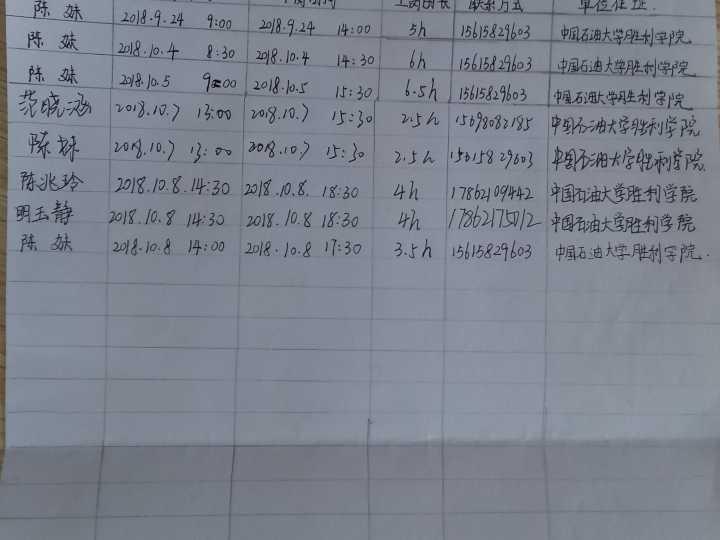 上岗时长 联系方式 单位住址.
陈 妹 2018.9.24 9:00 2018.9.24 14:00 5h 15615829603 中国石油大学胜利学院
陈 妹 2018.10.4 8:30 2018.10.4 14:30 6h 15615829603 中国石油大学胜利学院
陈 妹 2018.10.5 9:00 2018.10.5 15:30 6.5h 15615829603 中国石油大学胜利学院
范晓涵 2018.10.7 13:00 2018.10.7 15:30 2.5h 15698082185 中国石油大学胜利学院
陈妹 2018.10.7 13:00 2018.10.7 15:30 2.5h 15615829603 中国石油大学胜利学院
陈兆玲 2018.10.8.14:30 2018.10.8. 18:30 4h 17862109442 中国石油大学胜利学院
明玉静 2018.10.8 14:30 2018.10.8 18:30 4h 17862175012 中国石油大学胜利学院
陈 妹 2018.10.8 14:00 2018.10.8 17:30 3.5h 15615829603 中国石油大学胜利学院.